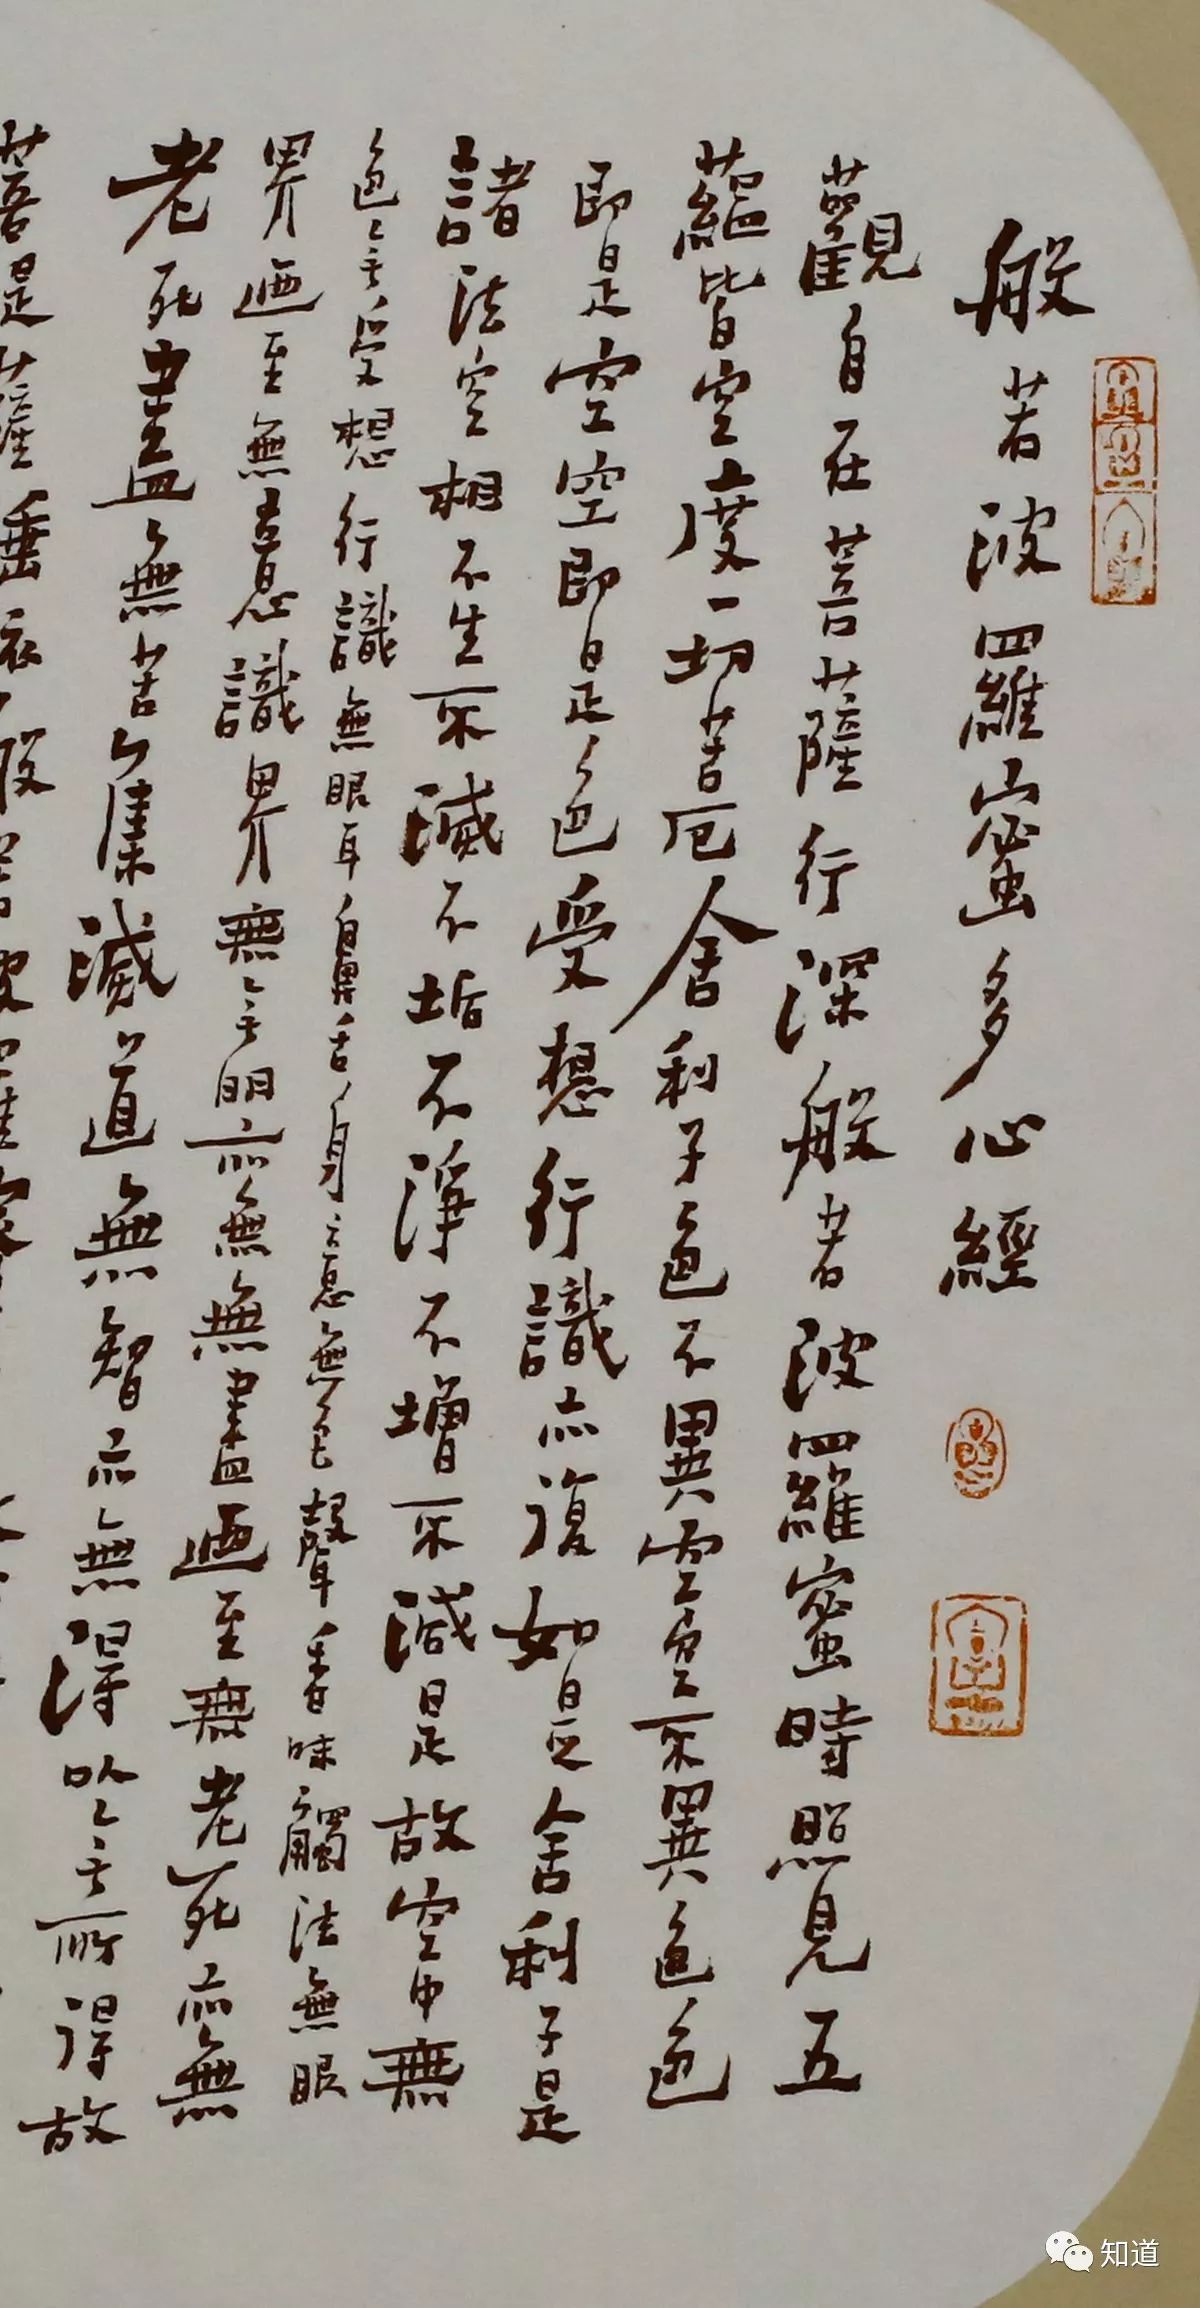 般若波羅蜜多心經
觀自在菩薩行深般若波羅蜜時照見五
蘊皆空度一切苦厄舍利子色不異空空不異色色
即是空空即是色受想行識亦復如是舍利子是
諸法空相不生不滅不垢不淨不增不減是故空中無
色無受想行識無眼耳鼻舌身意無色聲香味觸法無眼
界迺至無意識界無無明亦無無盡迺至無老死亦無
老死盡無苦集滅道無智亦無得以無所得故
菩提薩埵依般若波羅蜜
知道